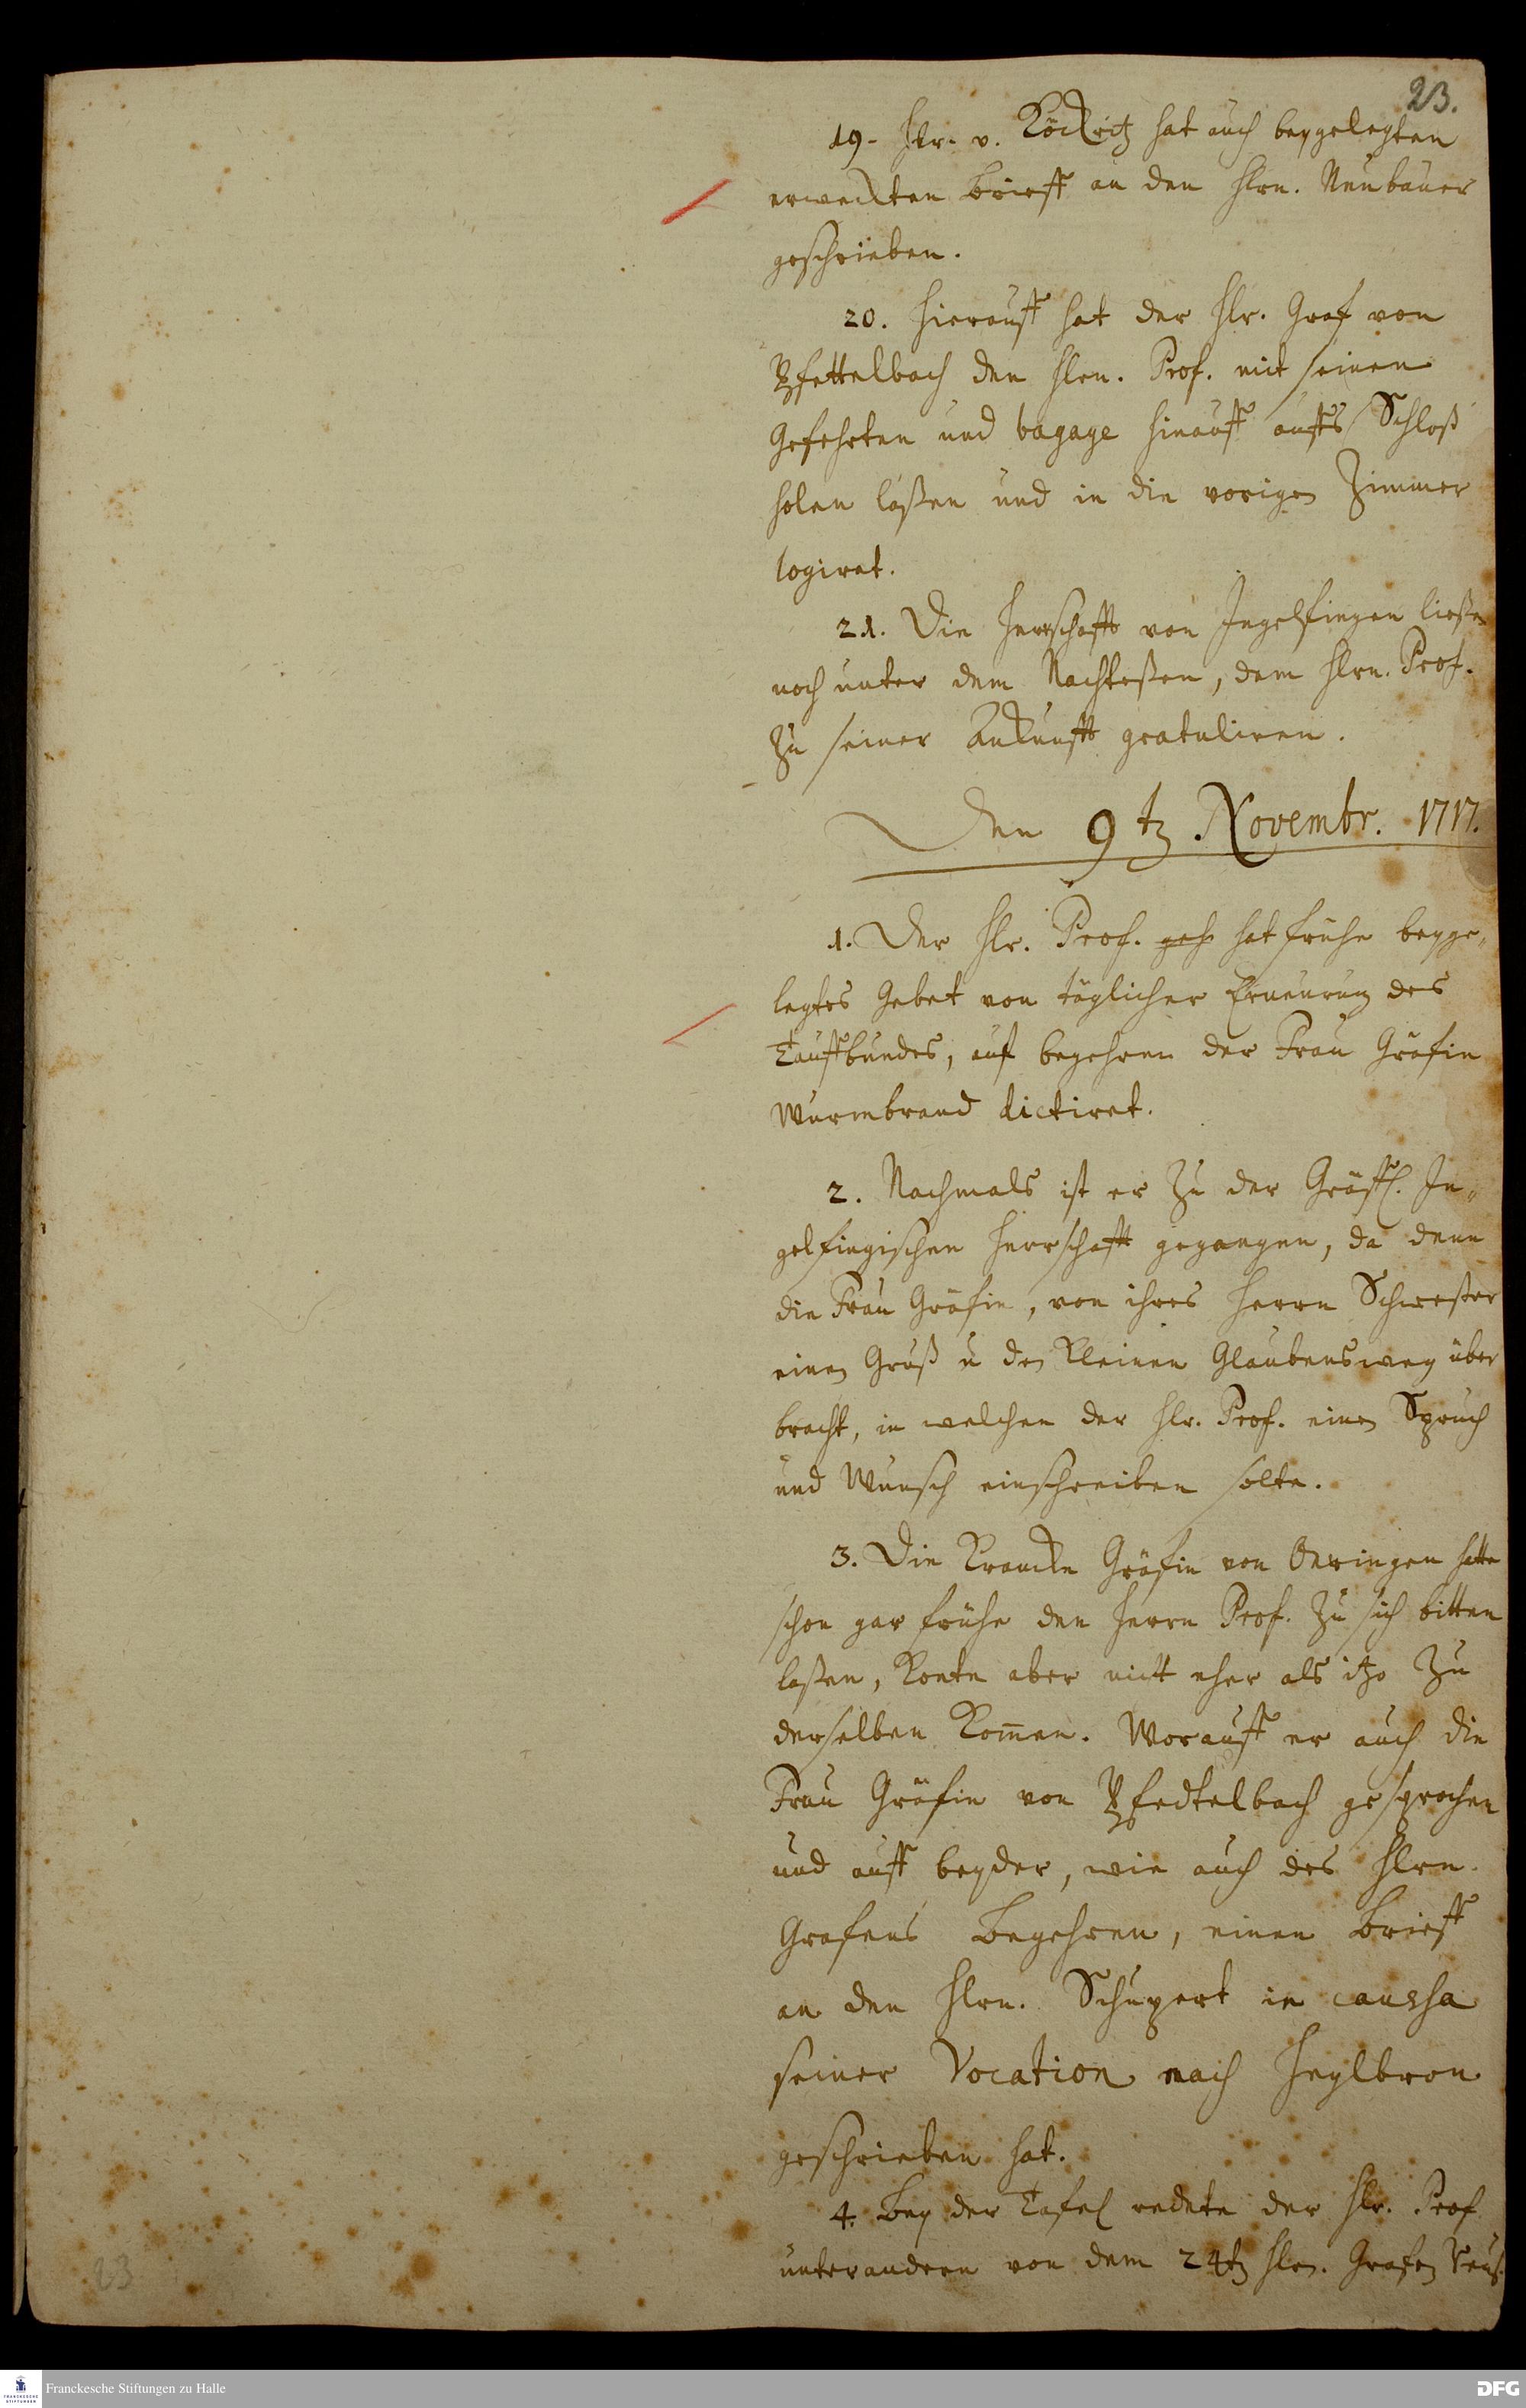 23.
19. Hr. v. Köckritz hat auch beygelegten
erweckten Brieff an den Hrn. Neubauer
geschrieben.
20. Hierauff hat der Hr. Graf von
Pfettelbach den Hrn. Prof. mit seinen
Gefehrten und bagage hinauff auffs Schloß
holen laßen und in die vorigen Zimmer
logiret.
21. Die Herrschafft von Ingelfingen ließen
noch unter dem Nachteßen, dem Hrn. Prof.
zu seiner Ankunfft gratuliren.
Den 9tn Novembr. 1717.
1. Der Hr. Prof. geh hat frühe beyge-
legtes Gebet von täglicher Erneurung des
Tauffbundes, auf begehren der Frau Gräfin
Wurmbrand dictiret.
2. Nachmals ist er zu der Gräffl. In-
gelfingischen Herrschafft gegangen, da denn
die Frau Gräfin, von ihres Herrn Schwester
einen Gruß u den kleinen Glaubensweg über
bracht, in welchen der Hr. Prof. einen Spruch
und Wunsch einschreiben solte.
3. Die Krancke Gräfin von Oeringen hatte
schon gar frühe den Herrn Prof. zu sich bitten
laßen, konte aber nicht eher als itzo zu
derselben kom̄en. Worauff er auch die
Frau Gräfin von Pfedtelbach gesprochen
und auff beyder, wie auch des Hrn.
Grafens Begehren, einen Brieff
an den Hrn. Schupart in caussa
seiner Vocation nach Heylbron
geschrieben hat.
4. Bey der Tafel redete der Hr. Prof
unterandern von dem 24tn Hrn. Grafen Reuß.
23
Franckesche Stiftungen zu Halle
DFG